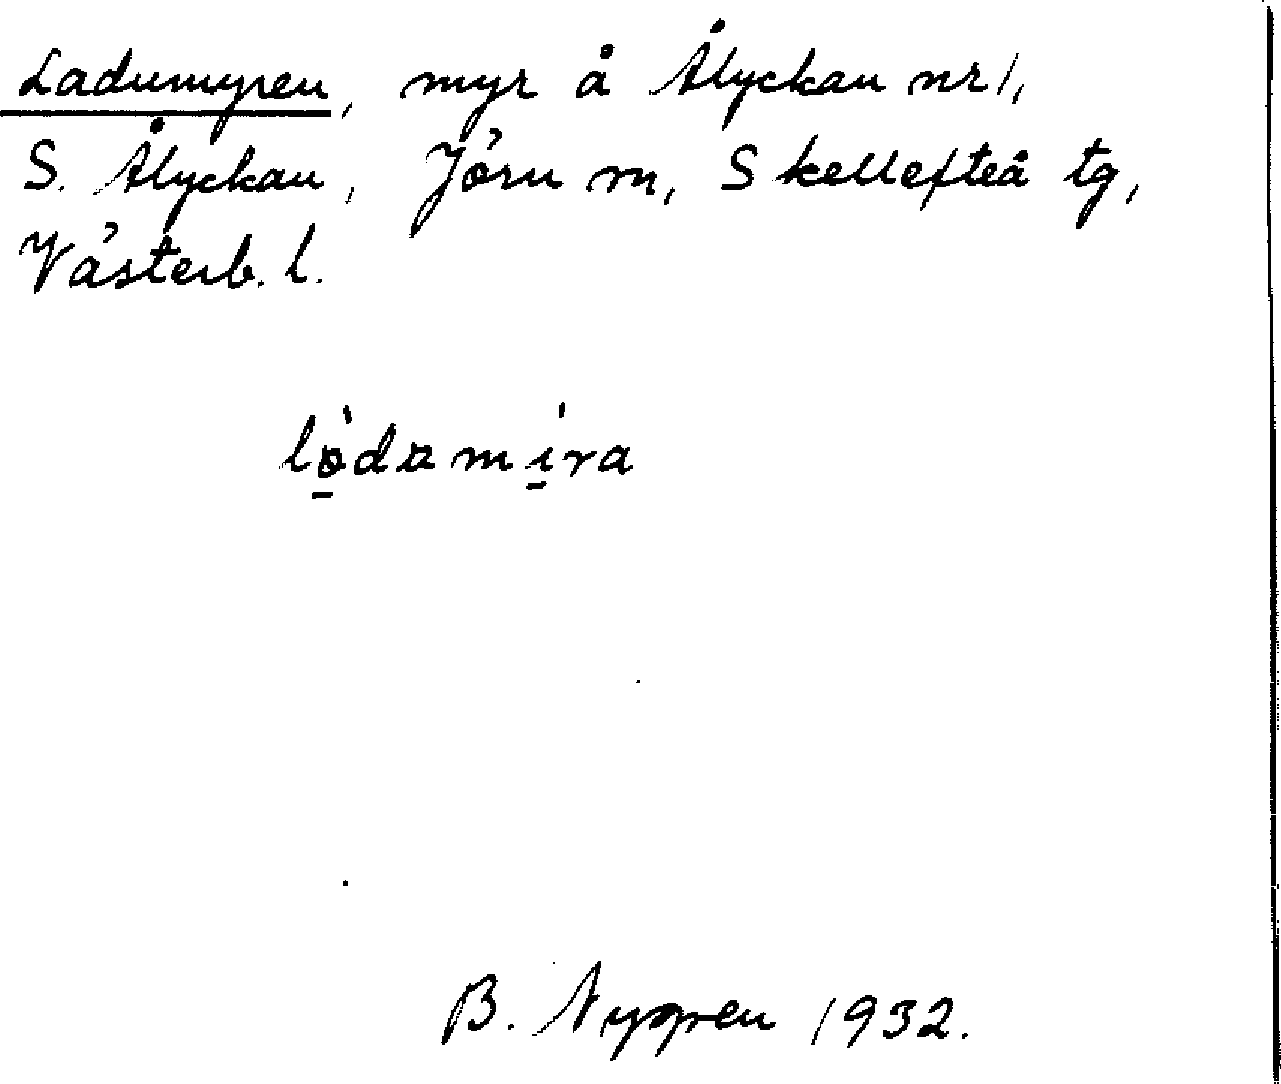 Ladumyren, myr å Ålyckan nr 1,
S. Ålyckan, Jörn m, Skellefteå tg,
Västerb. l.
B. Nygren 1932.